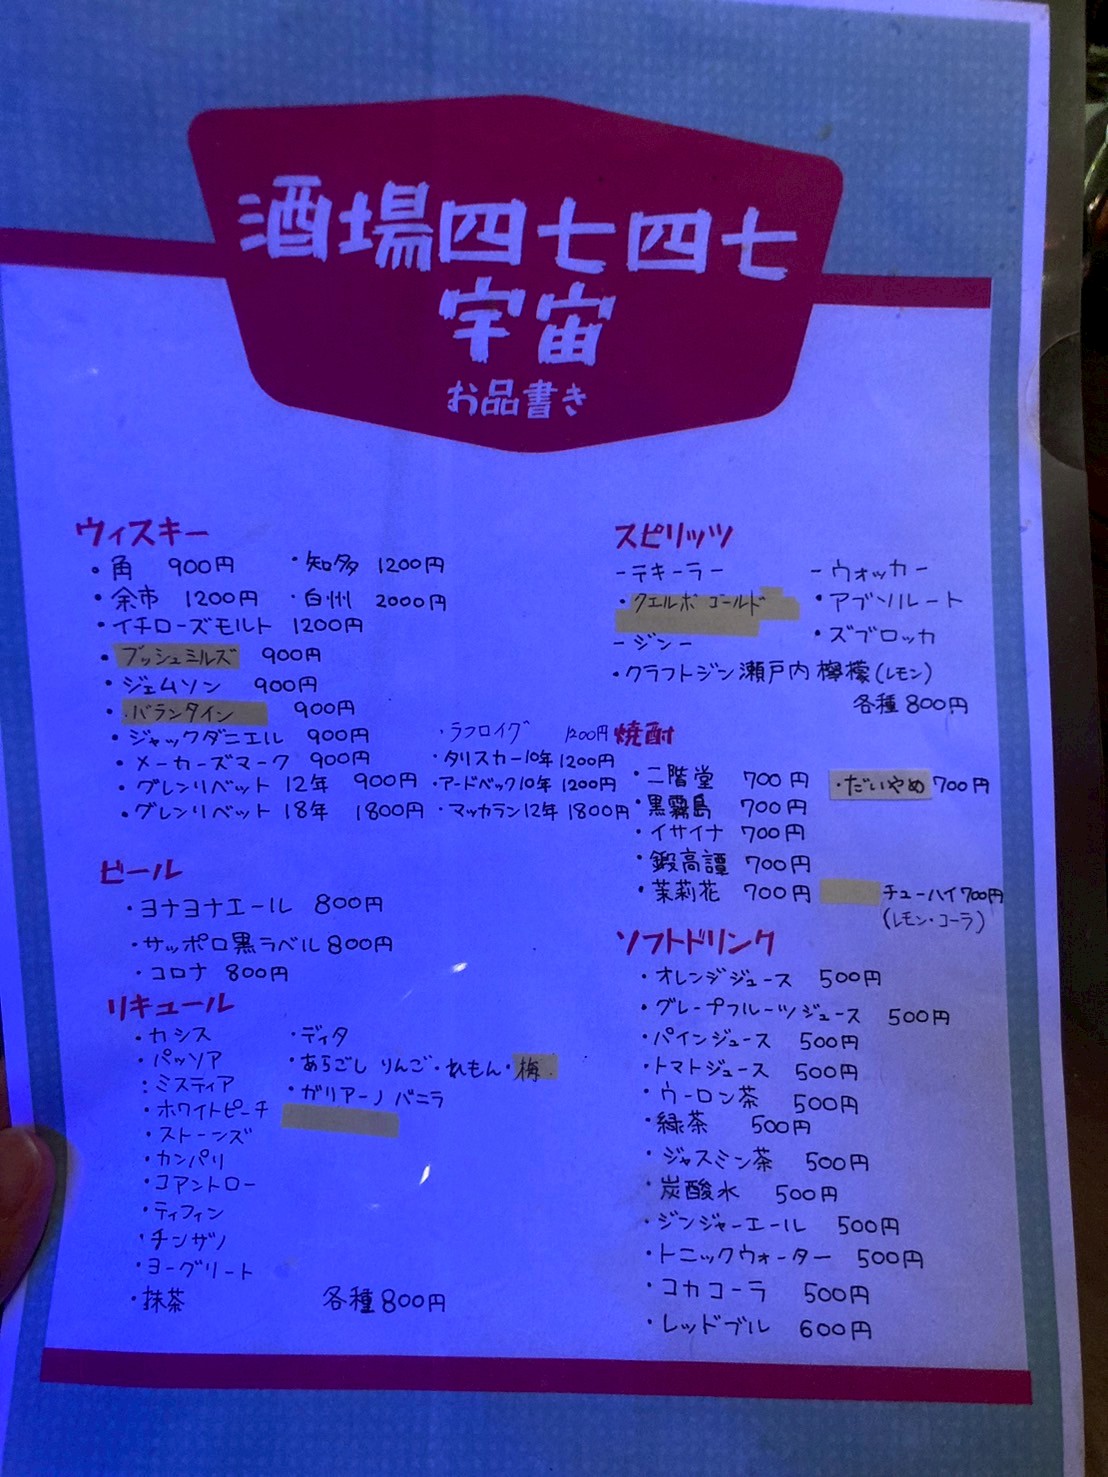 酒場四七四七
宇宙
お品書き
ウィスキー
・角 900円 ・知多 1200円
・余市 1200円 ・白州 2000円
・イチローズモルト 1200円
・ブッシュミルズ 900円
・ジェムソン 900円
・バランタイン 900円
・ジャックダニエル 900円 ・ラフロイグ 1200円
・メーカーズマーク 900円 ・タリスカー10年 1200円
・グレンリベット 12年 900円 ・アードベック10年 1200円
・グレンリベット 18年 1800円 ・マッカラン12年 1800円
ビール
・ヨナヨナエール 800円
・サッポロ黒ラベル 800円
・コロナ 800円
リキュール
・カシス ・ディタ
・パッソア ・あらごし りんご・れもん・梅
・ミスティア ・ガリアーノ バニラ
・ホワイトピーチ
・ストーンズ
・カンパリ
・コアントロー
・ティフィン
・チンザノ
・ヨーグリート
・抹茶 各種800円
スピリッツ
-テキーラー -ウォッカー
・クエルボ ゴールド ・アブソルート
・ズブロッカ
-ジン-
・クラフトジン瀬戸内 檸檬(レモン)
各種800円
焼酎
・二階堂 700円 ・だいやめ 700円
・黒霧島 700円
・イサイナ 700円
・鍛高譚 700円
・茉莉花 700円 チューハイ 700円
(レモン・コーラ)
ソフトドリンク
・オレンジジュース 500円
・グレープフルーツジュース 500円
・パインジュース 500円
・トマトジュース 500円
・ウーロン茶 500円
・緑茶 500円
・ジャスミン茶 500円
・炭酸水 500円
・ジンジャーエール 500円
・トニックウォーター 500円
・コカコーラ 500円
・レッドブル 600円